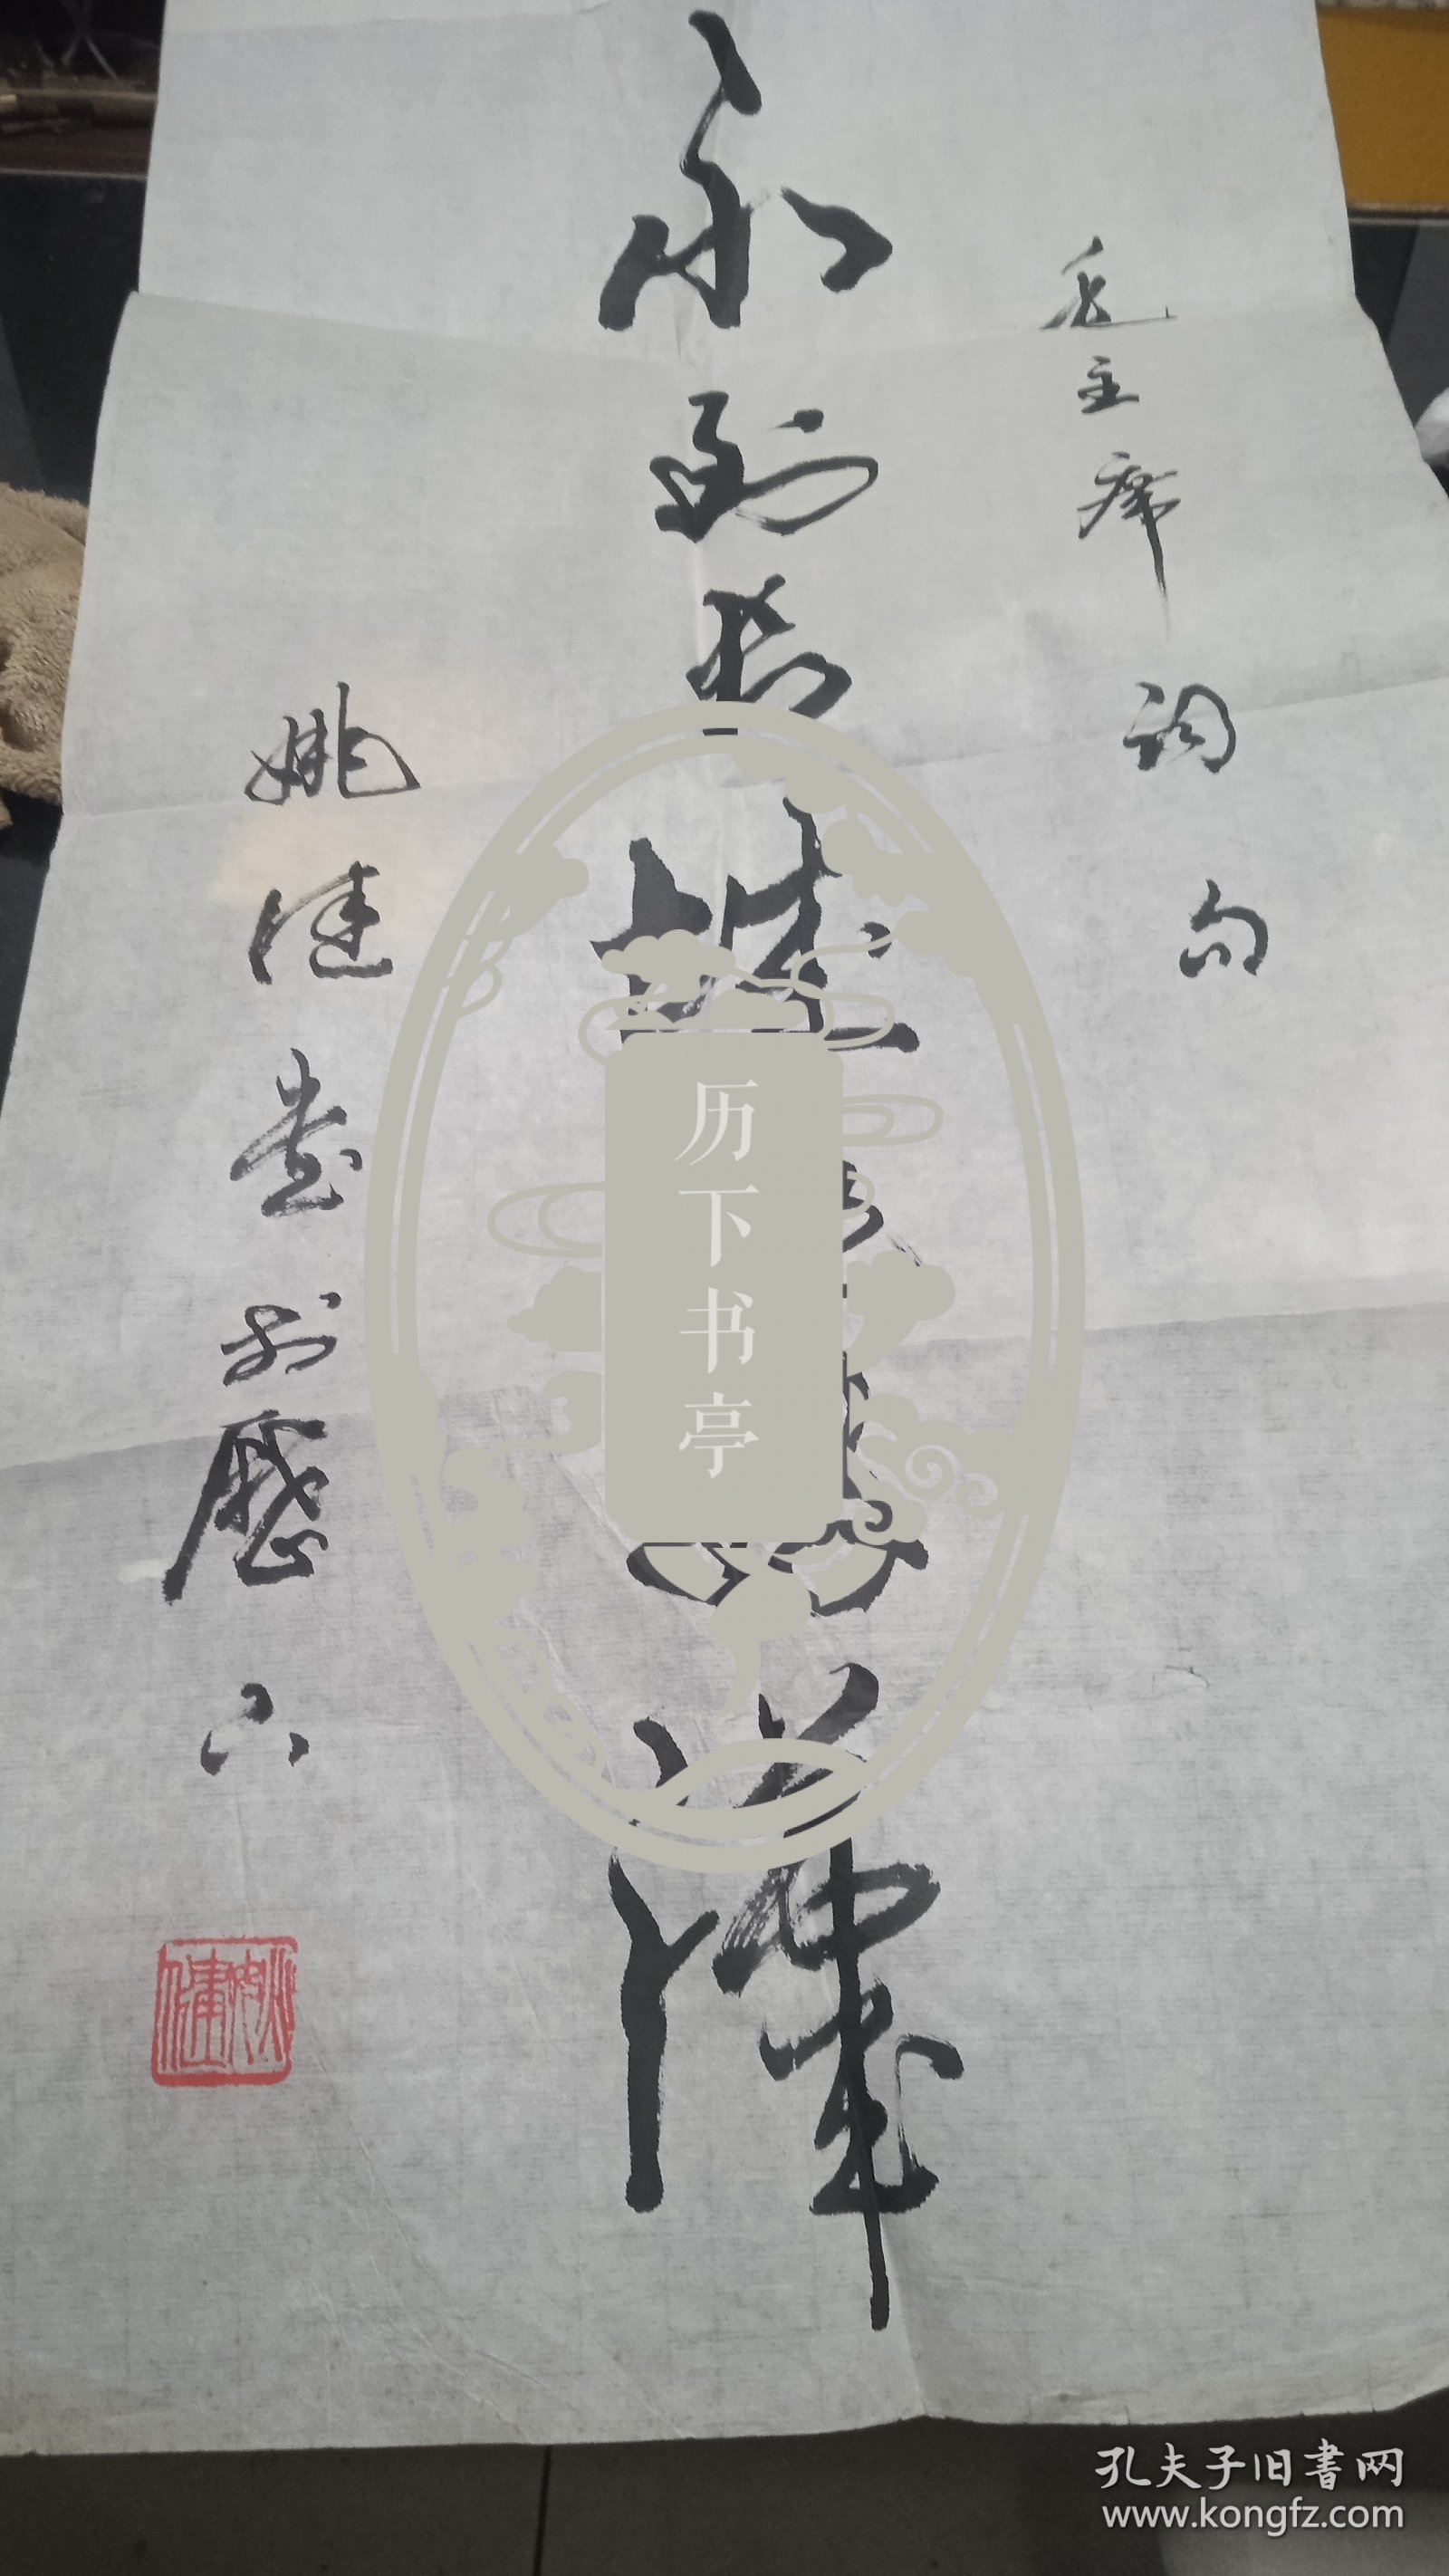 毛主席词句
不到长城漢
姚健書於歷下
姚健
历下书亭
孔夫子旧書网
www.kongfz.com